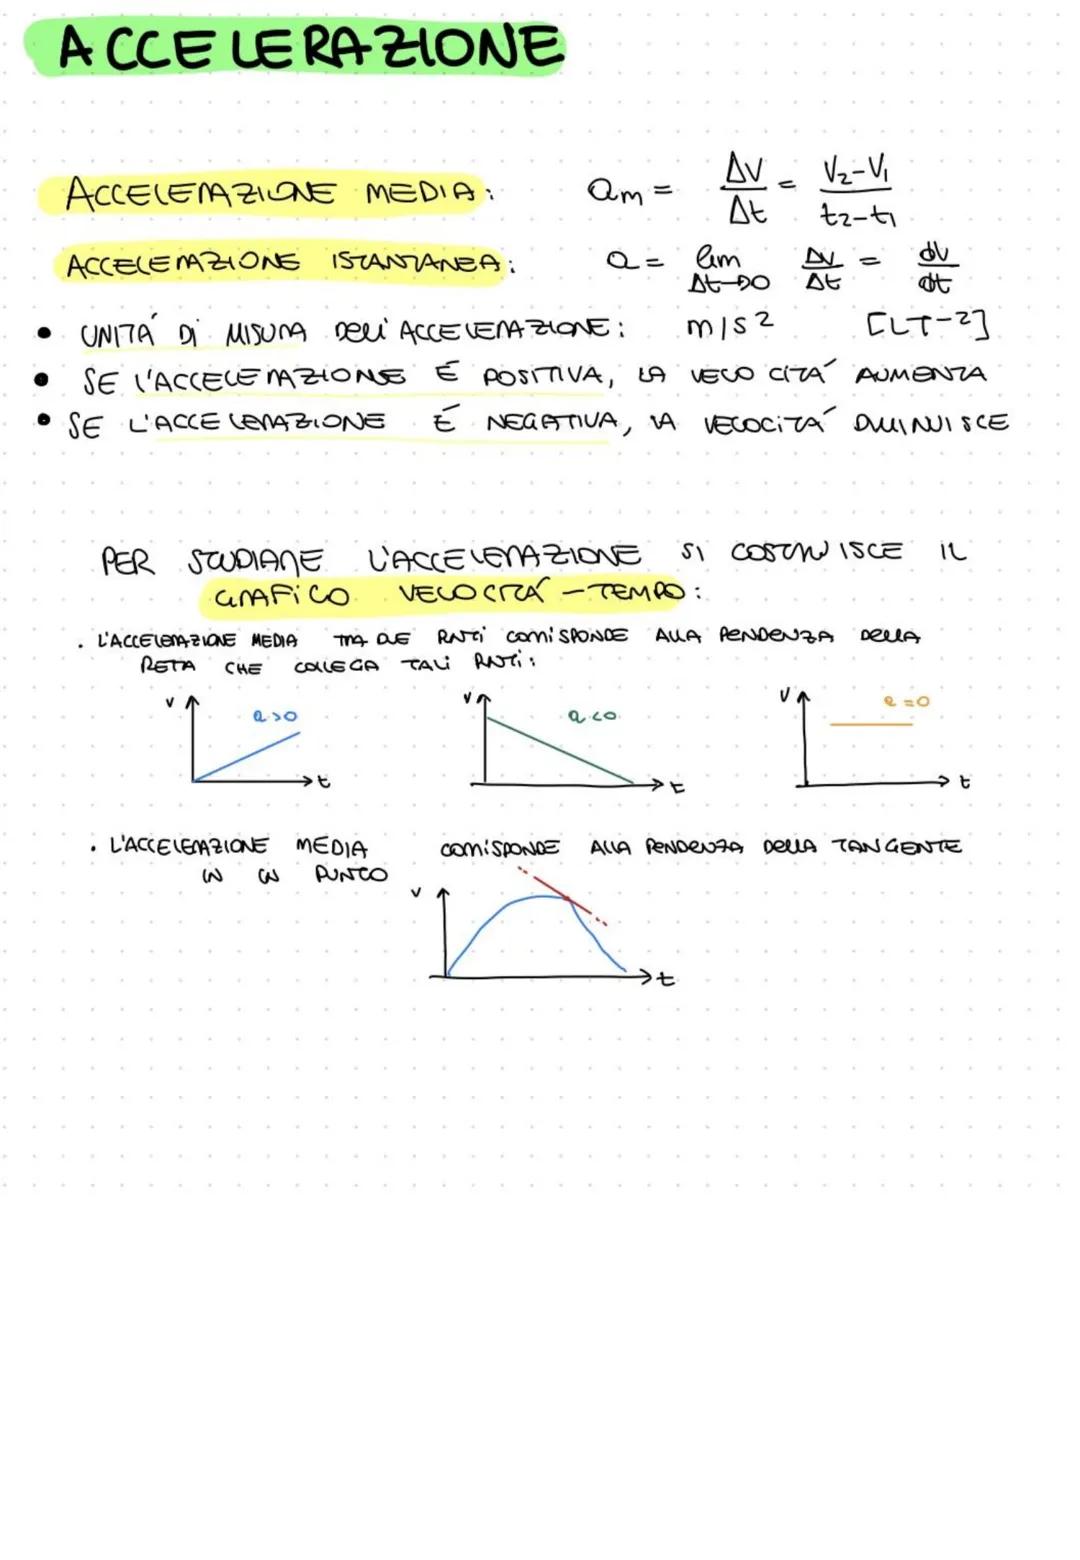 ACCELERAZIONE
ACCELERAZIONE MEDIA: am = ΔV/Δt = V2-V1/t2-t1
ACCELERAZIONE ISTANTANEA: a = lim Δt→0 ΔV/Δt = dV/dt
• UNITÁ DI MISURA DELL'ACCELERAZIONE: m/s2 [LT-2]
• SE L'ACCELERAZIONE É POSITIVA, LA VELOCITÁ AUMENTA
• SE L'ACCELERAZIONE É NEGATIVA, LA VELOCITÁ DIMINUISCE
PER STUDIARE L'ACCELERAZIONE SI COSTRUISCE IL
GRAFICO VELOCITÁ - TEMPO:
. L'ACCELERAZIONE MEDIA TRA DUE PUNTI CORRISPONDE ALLA PENDENZA DELLA
RETA CHE COLLEGA TALI PUNTI:
V a>0 t
V a<0 t
V a=0 t
. L'ACCELERAZIONE MEDIA CORRISPONDE ALLA PENDENZA DELLA TANGENTE
IN UN PUNTO
V t